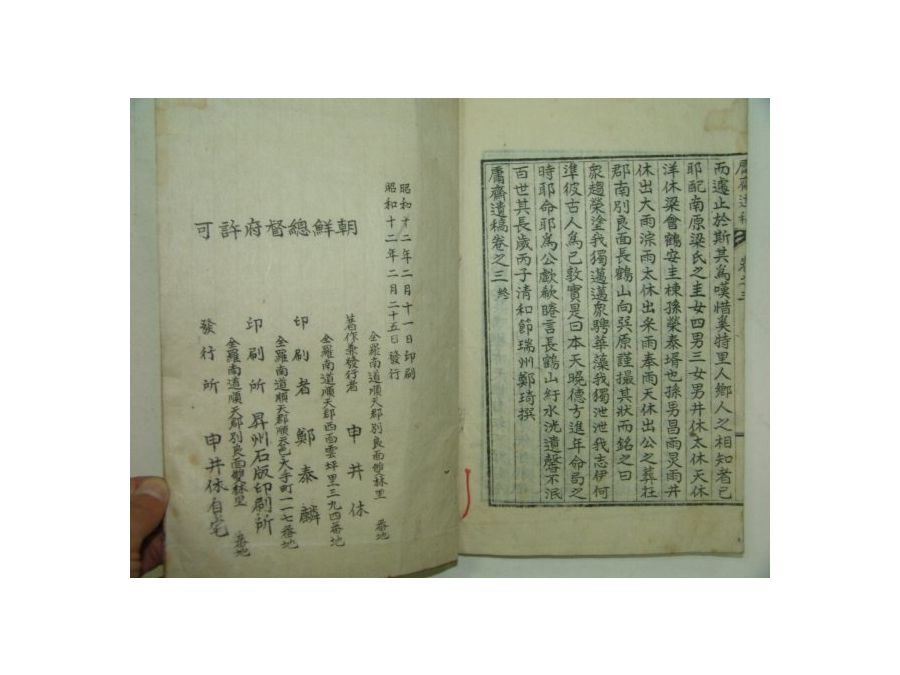 庸齋遺稿 卷之三
而遽止於斯其爲嘆惜奚特里人鄕人之相知者已
耶配南原梁氏之圭女四男三女男井休太休天休
洋休梁會鶴安圭棟孫榮泰壻也孫男昌雨炅雨井
休出大雨淙雨太休出米雨奉雨天休出公之葬在
郡南別良面長鶴山向巽原謹撮其狀而銘之曰
衆趨榮塗我獨邁邁衆騁華藻我獨泄泄我志伊何
準彼古人爲己敦實是曰本天晩德方進年命局之
時耶命耶爲公歔欷睠言長鶴山紆水洸遺馨不泯
百世其長歲丙子淸和節瑞州鄭琦撰
庸齋遺稿卷之三終
昭和十二年二月十一日印刷
昭和十二年二月二十五日發行
朝鮮總督府許可
全羅南道順天郡別良面雙林里 番地
著作兼發行者 申井休
全羅南道順天郡西面雲坪里三九四番地
印刷者 鄭泰麟
全羅南道順天郡順天邑大手町一一七番地
印刷所 昇州石版印刷所
全羅南道順天郡別良面雙林里 番地
發行所 申井休自宅